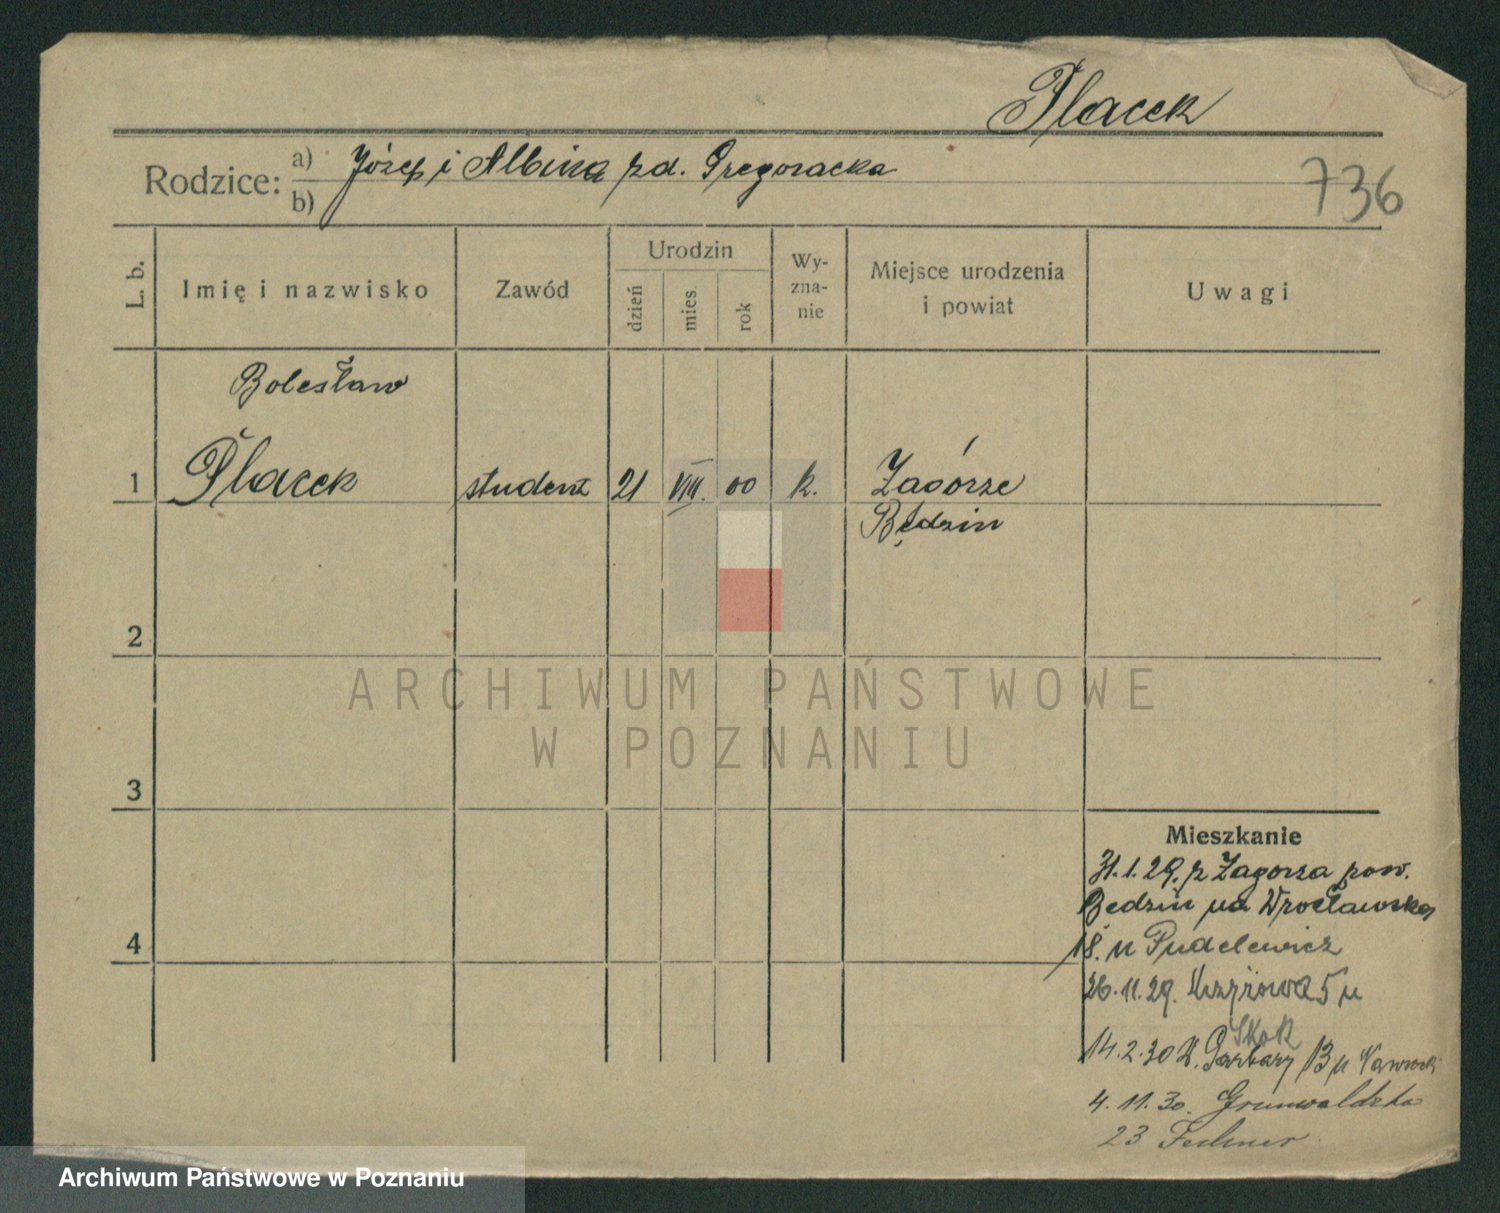 Placek
Rodzice: a) Józef i Albina zd. Gregoracka
b)
736
L. b.
Imię i nazwisko
Zawód
Urodzin
dzień
mies
rok
Wy-
zna-
nie
Miejsce urodzenia
i powiat
Uwagi
Bolesław
1 Placek student 21 VIII. 00 k. Zagórze
Będzin
2
3
4
ARCHIWUM PAŃSTWOWE
W POZNANIU
Mieszkanie
31.1.29. z Zagórza pow.
Będzin na Wrocławską
18. u Pudelewicz
26.11.29. 5 u
Skok
14.2.30 W. Garbary 13 u Nawrocki
4.11.30. Grunwaldzka
23
Archiwum Państwowe w Poznaniu